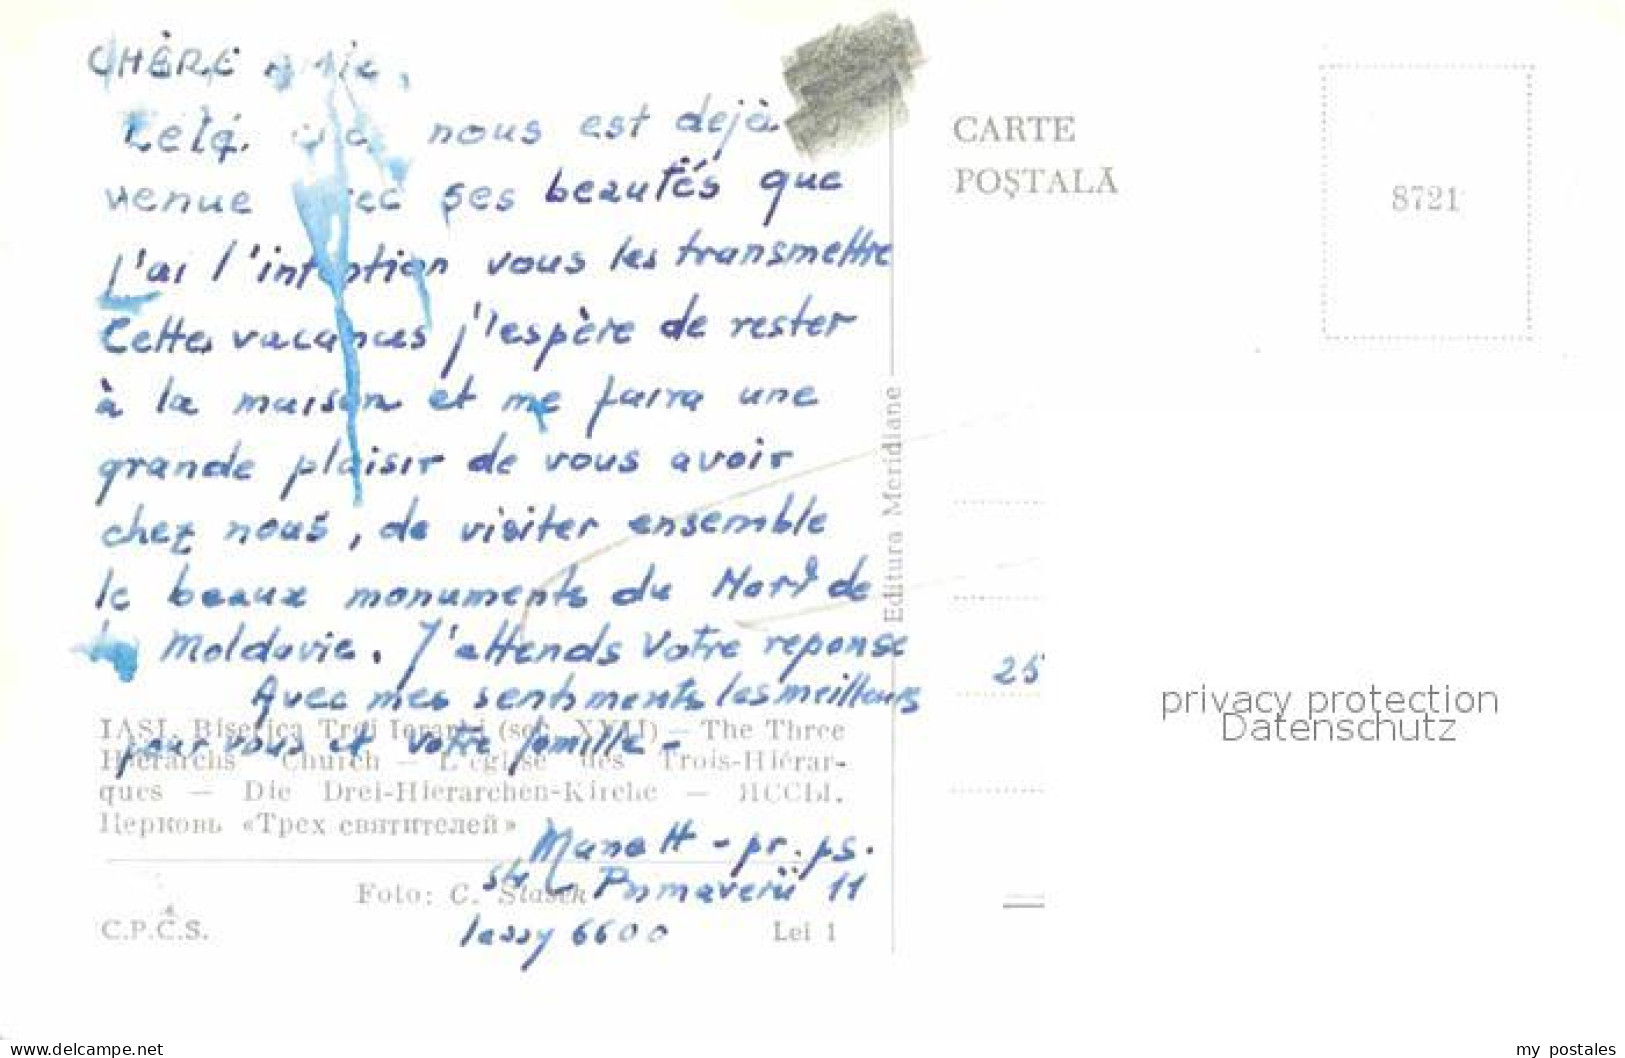 CHÈRE
nous est dejà
venue ses beautés que
j'ai l'intention vous les transmettre
Cette vacances j'espère de rester
à la maison et me faira une
grande plaisir de vous avoir
chez nous, de visiter ensemble
le beaux monuments du Nord de
la Moldavie. J'attends Votre reponse
Avec mes sentiments les meilleurs
pour vous et votre famille -
IAȘI. Biserica Trei Ierarhi (sec. XVII) — The Three
Hierarchs Church — L'église des Trois-Hiérar-
ques — Die Drei-Hierarchen-Kirche — ЯССЫ.
Церковь «Трех святителей»
pr. ps.
Foto: C. Stasek
Primaverii 11
Iassy 6600
C.P.C.S.
Lei 1
Editura Meridiane
CARTE
POȘTALĂ
8721
25
privacy protection
Datenschutz
www.delcampe.net
my_postales